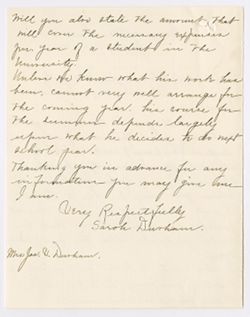 Will you also state the amount that
will cover the necessary expenses
per year of a student in the
University.
Unless we know what his work has
been, cannot very well arrange for
the coming year. his course for
the summer depends largely
upon what he decides to do next
school year.
Thanking you in advance for any
information you may give me
I am.
Very Respectfully
Sarah Durham.
Mrs Jas. V. Durham.